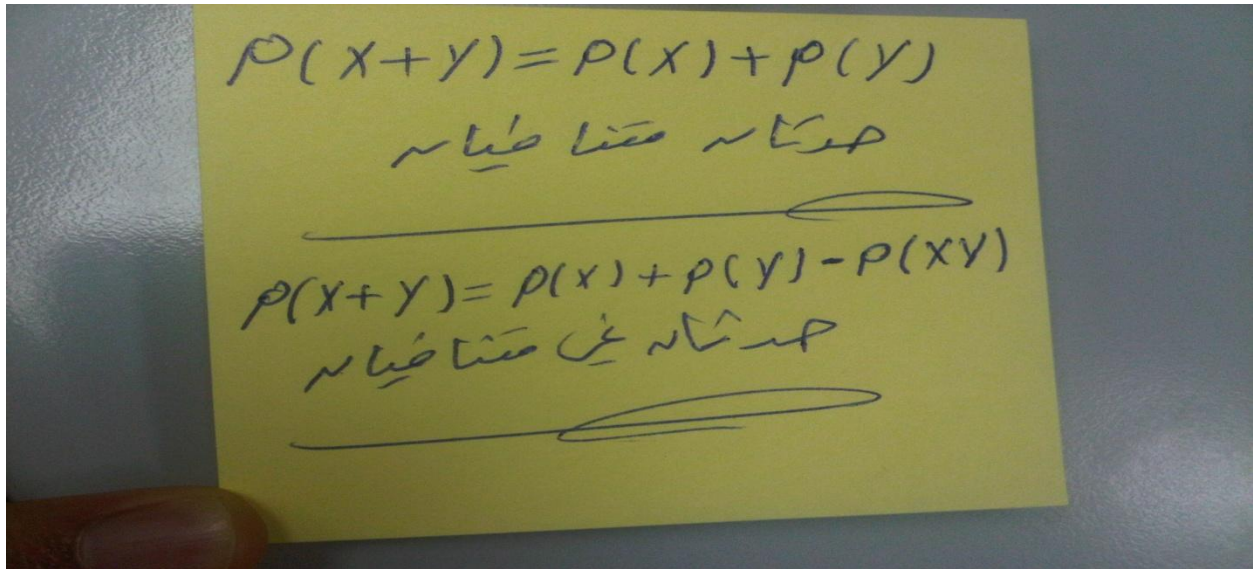 P(X+Y)=P(X)+P(Y)
حدثان متنافيان
P(X+Y)=P(X)+P(Y)-P(XY)
حدثان غير متنافيان